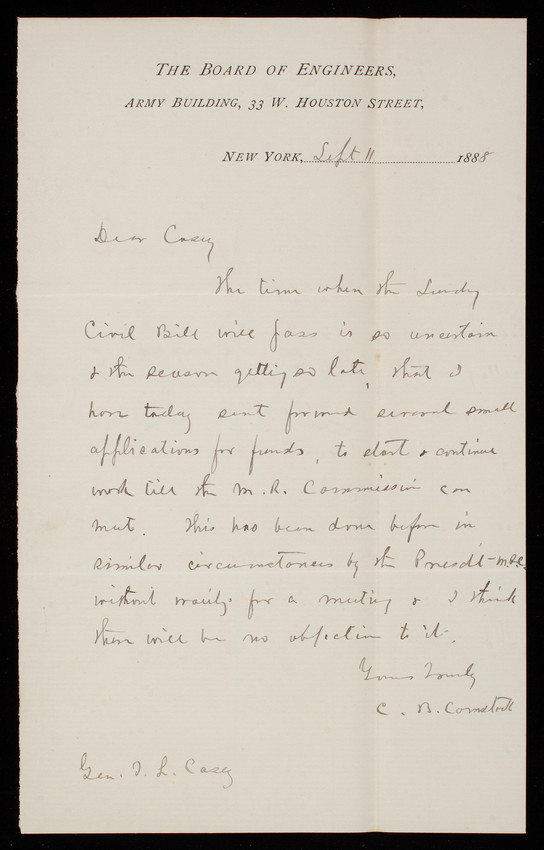 THE BOARD OF ENGINEERS,
ARMY BUILDING, 33 W. HOUSTON STREET,
NEW YORK, Sept 11 1888
Dear Casey
The time when the Sundry
Civil Bill will pass is so uncertain
& the season getting so late, that I
have today sent forward several small
applications for funds, to start & continue
work till the M.R. Commission can
meet. This has been done before in
similar circumstances by the Presdt - M.R.C.
without waiting for a meeting & I think
there will be no objection to it.
Yours truly
C. B. Comstock
Gen. T. L. Casey